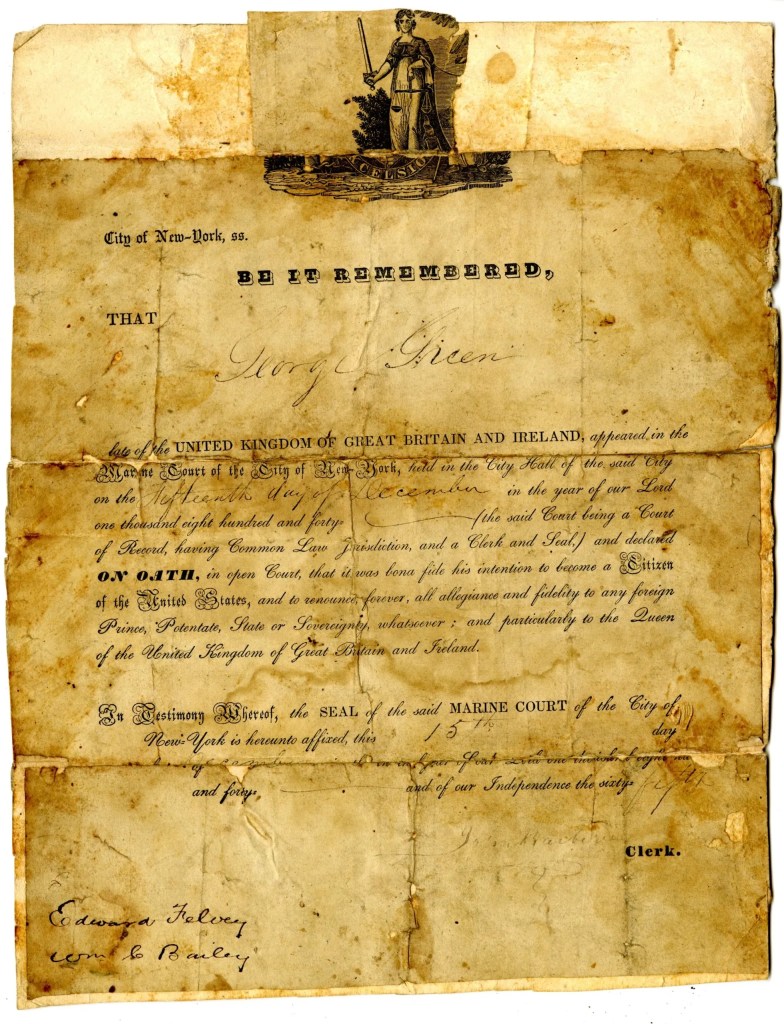 CELSIO
City of New-York, ss.
BE IT REMEMBERED,
THAT
George Green
late of the UNITED KINGDOM OF GREAT BRITAIN AND IRELAND, appeared in the
Marine Court of the City of New-York, held in the City Hall of the said City
on the fifteenth day of December in the year of our Lord
one thousand eight hundred and forty- (the said Court being a Court
of Record, having Common Law Jurisdiction, and a Clerk and Seal,) and declared
ON OATH, in open Court, that it was bona fide his intention to become a Citizen
of the United States, and to renounce, forever, all allegiance and fidelity to any foreign
Prince, Potentate, State or Sovereignty, whatsoever; and particularly to the Queen
of the United Kingdom of Great Britain and Ireland.
In Testimony Whereof, the SEAL of the said MARINE COURT of the City of
New-York is hereunto affixed, this 15th day
of in the year of our Lord one thousand eight hundred
and forty- and of our Independence the sixty-
Clerk.
Edward Felvey
Wm C Bailey